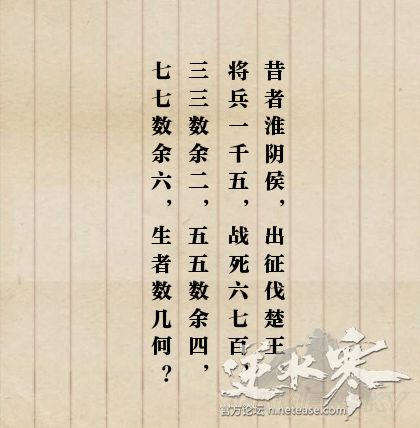 昔者淮阴侯，出征伐楚王
将兵一千五，战死六七百，
三三数余二，五五数余四，
七七数余六，生者数几何？
逆水寒
官方论坛 n.netease.com